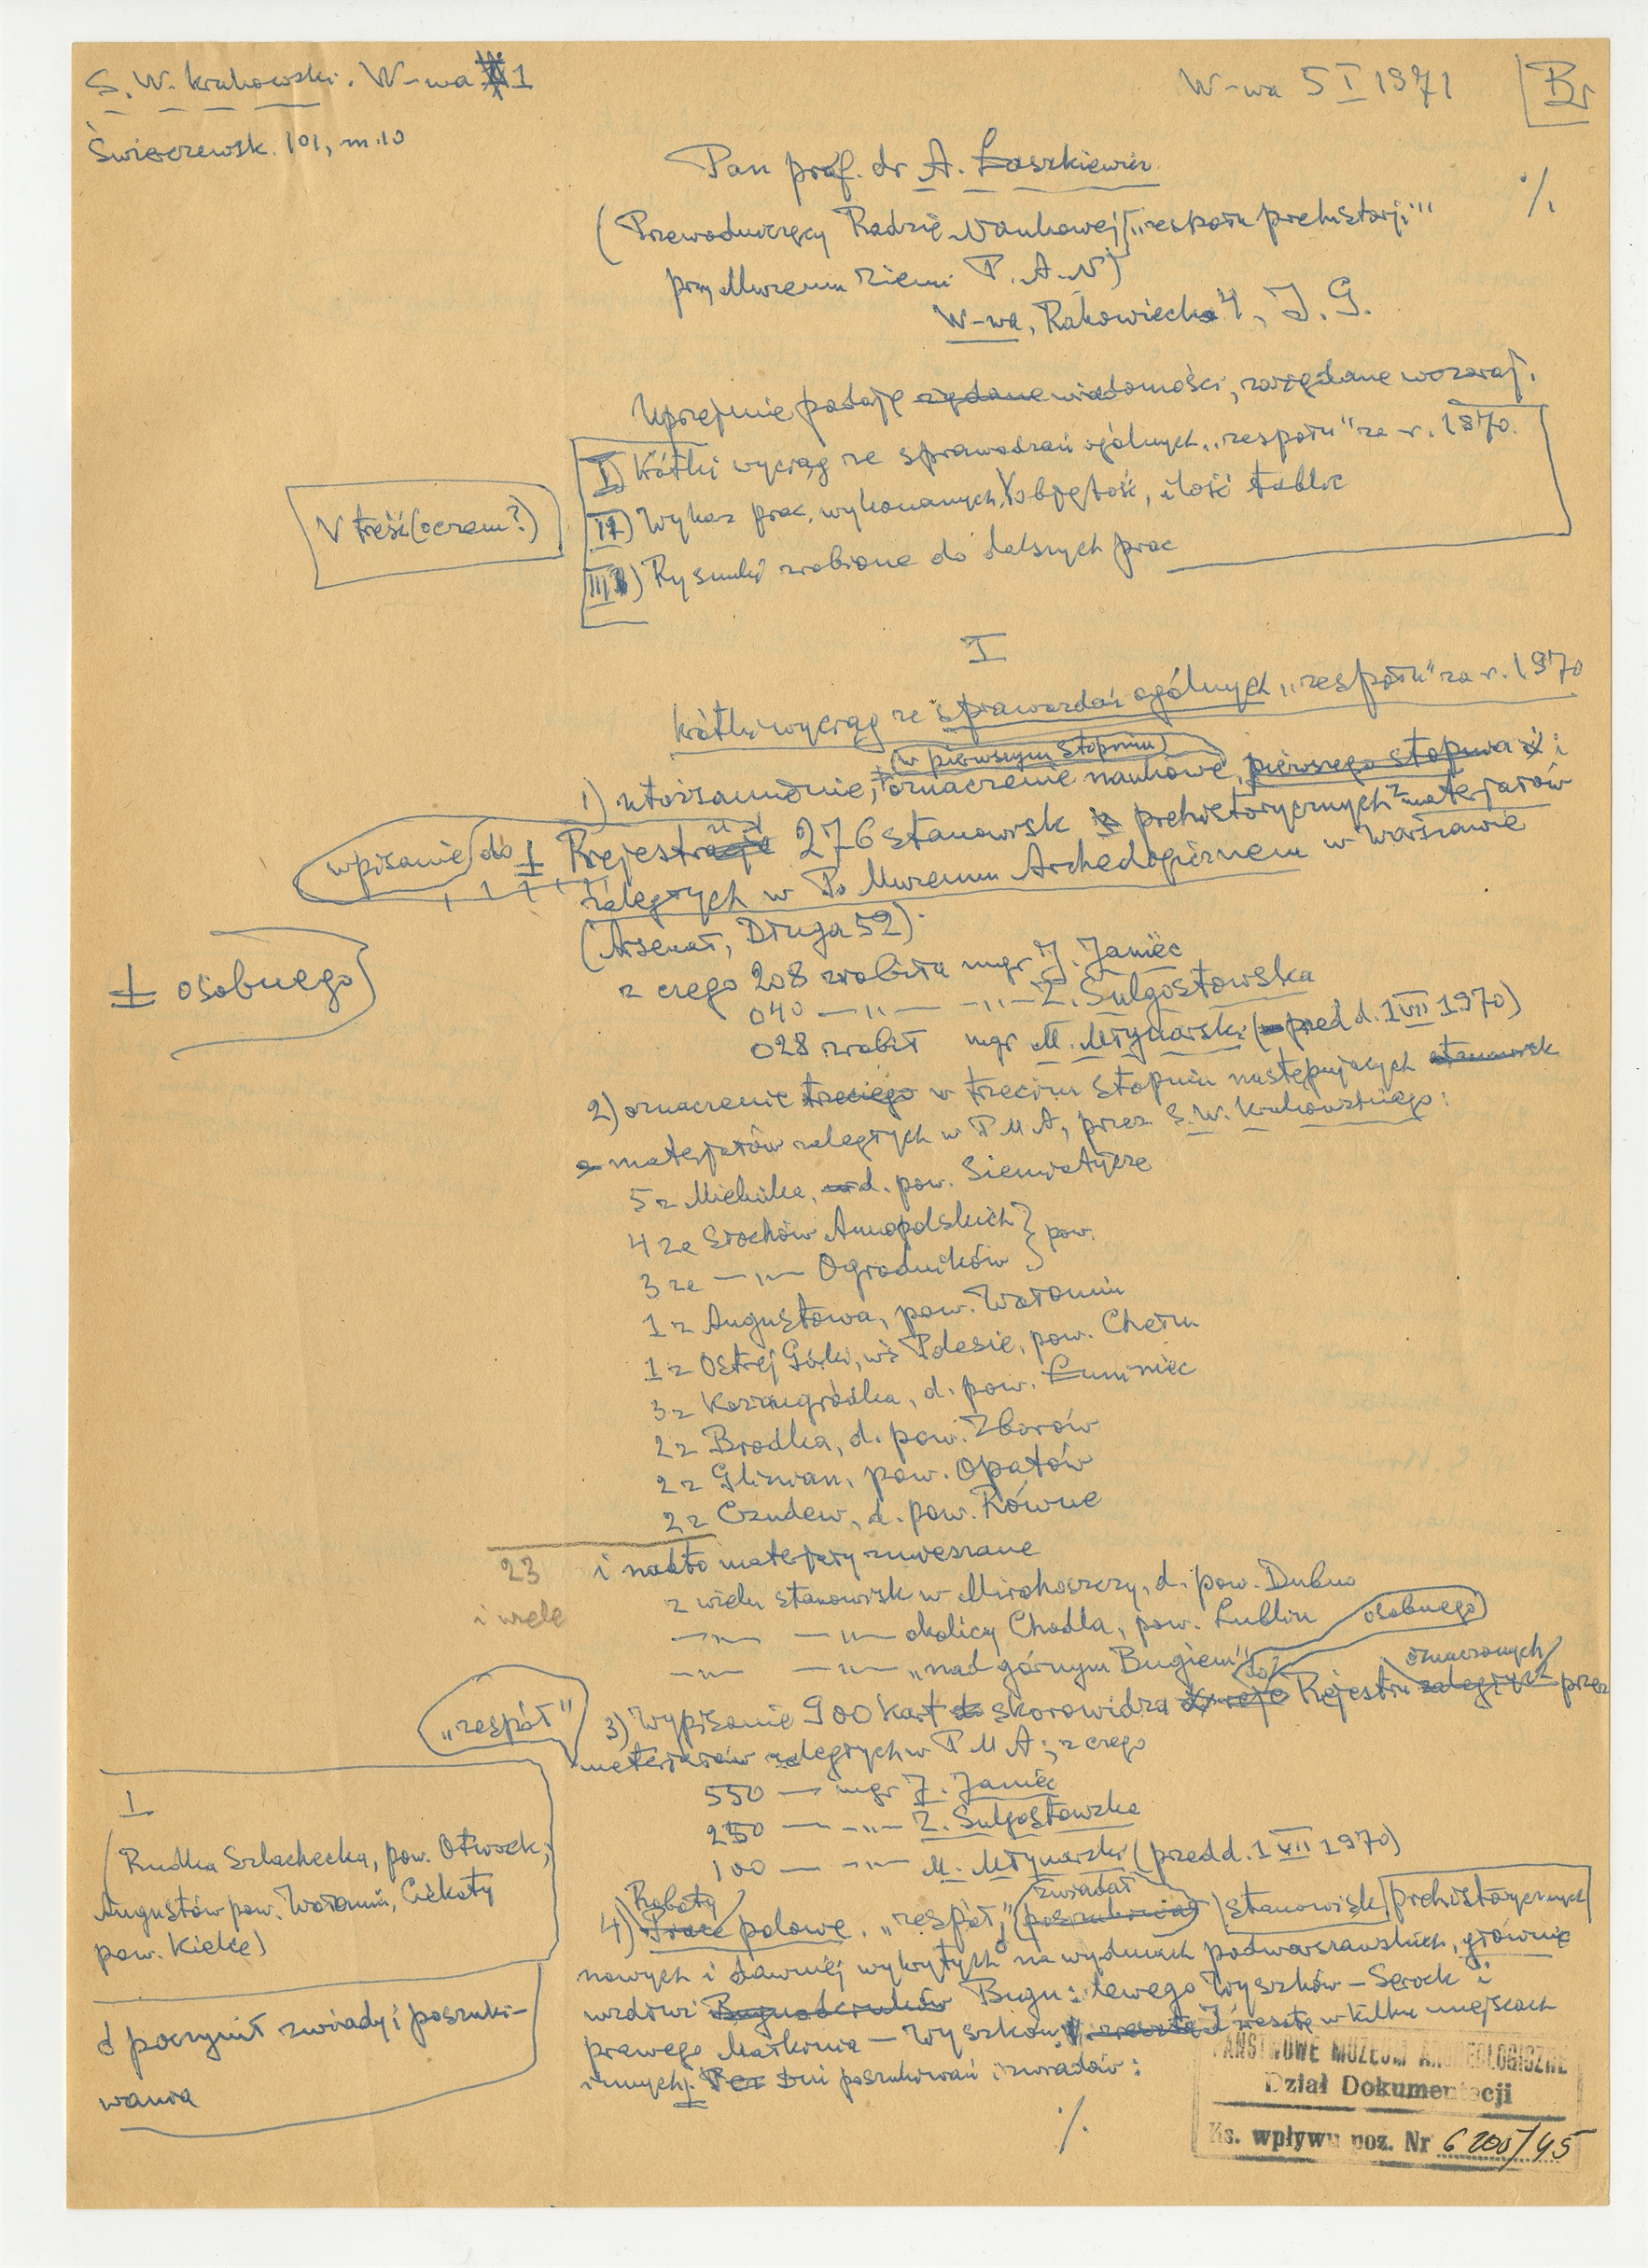 S. W. Krukowski. W-wa 1
Świerczewsk. 101, m. 10
W-wa 5 I 1971
Br
Pan prof. dr A. Łaszkiewicz
(Przewodniczący Radzie Naukowej „zespołu prehistorji”
przy Muzeum Ziemi P. A. N)
W-wa, Rakowiecka 4, I. G.
./.
Uprzejmie podaję wiadomości, zażądane wczoraj.
I) Krótki wyciąg ze sprawozdań ogólnych „zespołu” za r. 1970.
II) Wykaz prac wykonanych, V objętość, ilość tablic
V treść (o czem?)
III) Rysunki zrobione do dalszych prac
I
Krótki wyciąg ze sprawozdań ogólnych „zespołu” za r. 1970
(w pierwszym stopniu)
1) utożsamienie, oznaczenie naukowe, pierwszego stopnia i
wpisanie do ⊥ Rejestru 276 stanowisk prehistorycznych materjałów
zaległych w P. Muzeum Archeologicznem w Warszawie
(Arsenał, Długa 52).
⊥ osobnego
z czego 208 zrobiła mgr J. Janiec
040 —„— —„— Z. Sulgostowska
028 zrobił mgr M. Młynarski (przed d. 1 VII 1970)
2) oznaczenie trzeciego w trzecim stopniu następujących stanowisk
materjałów zaległych w P M A, przez S. W. Krukowskiego:
5 z Mielnika, d. pow. Siemiatycze
4 ze Stochów Annopolskich } pow.
3 ze —„— Ogrodników }
1 z Augustowa, pow. Wołomin
1 z Ostrej Górki, wś Polesie, pow. Chełm
3 z Kozangródka, d. pow. Łuniniec
2 z Brodka, d. pow. Zborów
2 z Glinian, pow. Opatów
2 z Czudew, d. pow. Równe
23 i nadto materjały zmieszane
i wiele
z wielu stanowisk w Mirohoszczy, d. pow. Dubno
—„— —„— okolicy Chodla, pow. Lublin
osobnego
—„— —„— „nad górnym Bugiem”
oznaczonych
„zespół” 3) Wypisanie 900 kart skorowidza do Rejestru zaległych przez
materjałów zaległych w P M A; z czego
550 — mgr J. Janiec
250 — —„— Z. Sulgostowska
100 — —„— M. Młynarski (przed d. 1 VII 1970)
⊥
(Rudka Szlachecka, pow. Otwock;
Augustów pow. Wołomin, Ciekoty
pow. Kielce)
Roboty zwiadał
4) Prace polowe. „zespół” poszukiwał stanowisk prehistorycznych
nowych i dawniej wykrytych na wydmach podwarszawskich, głównie
wzdłuż Bugu: lewego Wyszków – Serock i
prawego Małkinia – Wyszków, zresztą w kilku miejscach
innych. ⊥ Dni poszukiwań i zwiadów:
d poczynił zwiady i poszuki-
wania
./.
PAŃSTWOWE MUZEUM ARCHEOLOGICZNE
Dział Dokumentacji
Ks. wpływu poz. Nr 6200/45